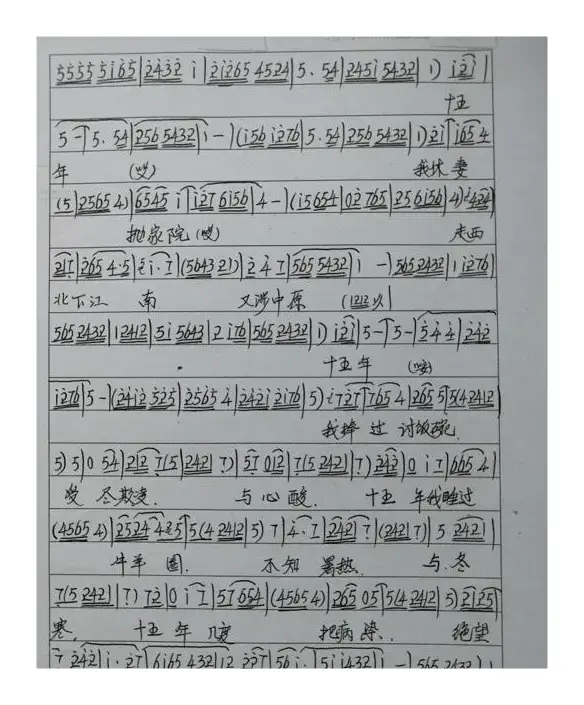 5555 5i65|2432 i|2i265 4524|5. 54|245i 5432|1) i2i|
十五
5 -|5. 54|256 5432|1 -|(i56 i276|5. 54|256 5432|1) 2i|i65 4
年 (哎) 我休妻
(5|2565 4)|6545 i|i27 6156|4 -|(i5654|02 765|25 6i56|4) i424|
抛家院(哎) 走西
217|265 4·5|2i·7|(5643 21)|2 4 7|565 5432|1 -|565 2432|1 i276|
北下江 南 又涉中原 (1212以
565 2432|12412|5i 5643|2 i76|565 2432|1) i2i|5 -|5 -|5 4 4|242
十五年 (哎)
i276|5 -|(24i2 525|2565 4|242i 2i76|5) i727|765 4|265 5|5(4 2412
我捧 过 讨饭碗
5) 5|0 54|212 7(5|2421 7)|57 012|7(5 2421|7) 242|0 i 7|665 4|
受 尽欺凌. 与心酸. 十五 年我睡过
(4565 4)|2524 425|5(4 2412|5) 7|4. 7|2421 7|(2421 7)|5 2421|
牛羊 圈. 不知 暑热. 与.冬
7(5 2421|7) 72|0 i 7|57 654|(4565 4)|265 05|5(4 2412|5) 2125|
寒. 十五 年 几度 把病 染. 绝望
7 242|i. 27|6165 432|12 227|56 i.|5i i432|1 -|565 2432|1